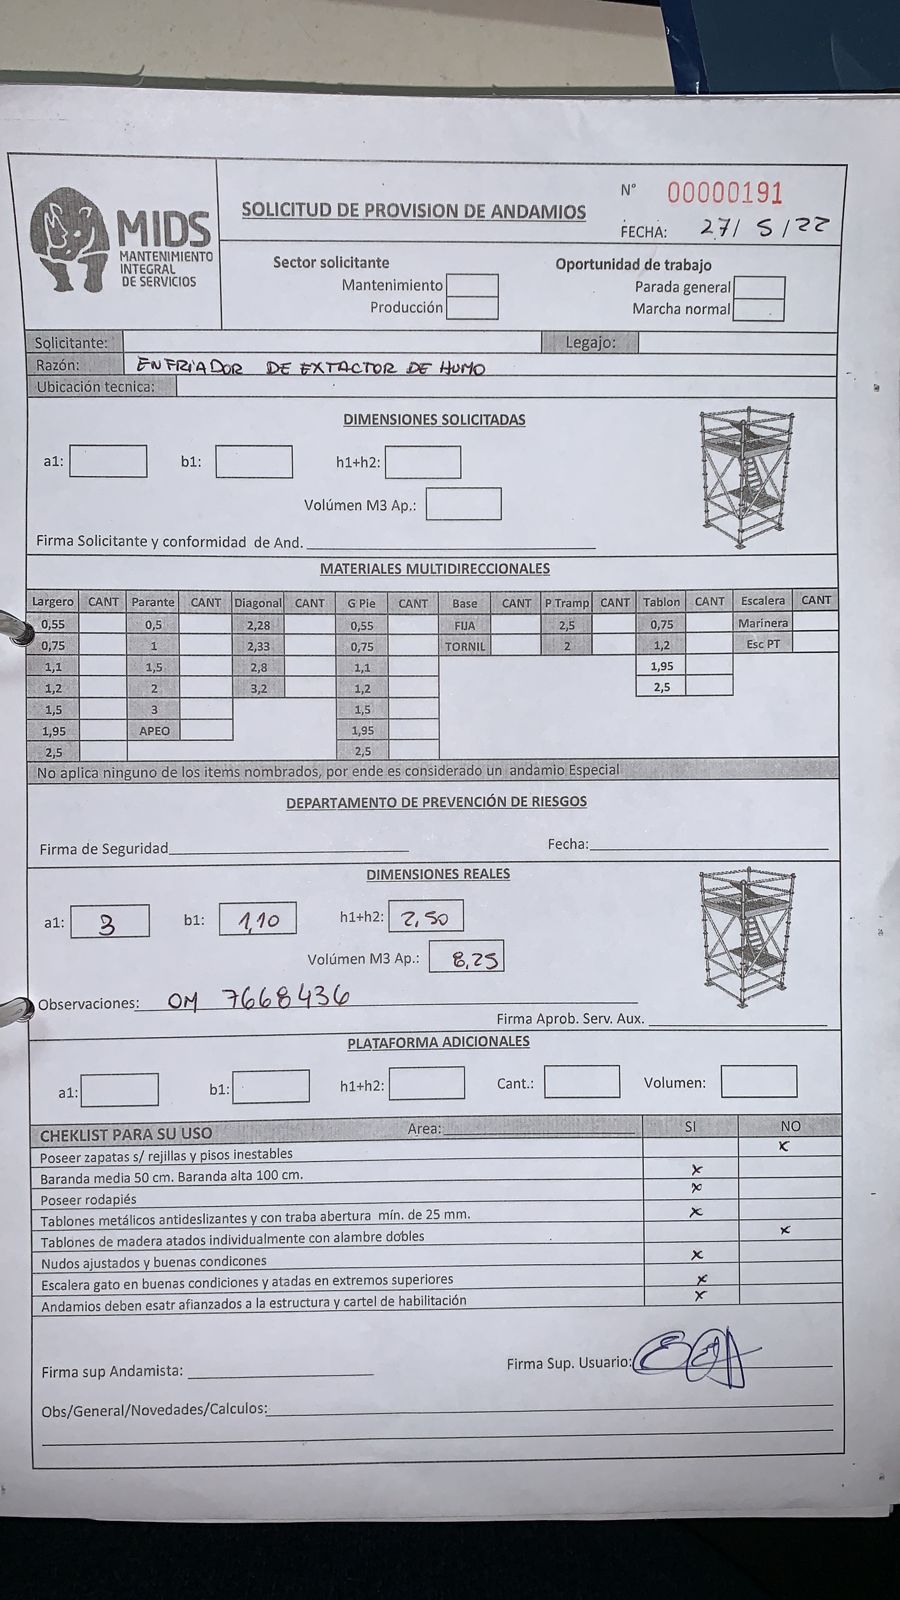 MIDS
MANTENIMIENTO
INTEGRAL
DE SERVICIOS
SOLICITUD DE PROVISION DE ANDAMIOS
N° 00000191
FECHA: 27/5/22
Sector solicitante
Mantenimiento
Producción
Oportunidad de trabajo
Parada general
Marcha normal
Solicitante: Legajo:
Razón: ENFRIADOR DE EXTACTOR DE HUMO
Ubicación tecnica:
DIMENSIONES SOLICITADAS
a1: b1: h1+h2:
Volúmen M3 Ap.:
Firma Solicitante y conformidad de And.
MATERIALES MULTIDIRECCIONALES
Largero CANT Parante CANT Diagonal CANT G Pie CANT Base CANT P Tramp CANT Tablon CANT Escalera CANT
0,55 0,5 2,28 0,55 FIJA 2,5 0,75 Marinera
0,75 1 2,33 0,75 TORNIL 2 1,2 Esc PT
1,1 1,5 2,8 1,1 1,95
1,2 2 3,2 1,2 2,5
1,5 3 1,5
1,95 APEO 1,95
2,5 2,5
No aplica ninguno de los items nombrados, por ende es considerado un andamio Especial
DEPARTAMENTO DE PREVENCIÓN DE RIESGOS
Firma de Seguridad Fecha:
DIMENSIONES REALES
a1: 3 b1: 1,10 h1+h2: 2,50
Volúmen M3 Ap.: 8,25
Observaciones: OM 7668436
Firma Aprob. Serv. Aux.
PLATAFORMA ADICIONALES
a1: b1: h1+h2: Cant.: Volumen:
CHEKLIST PARA SU USO Area: SI NO
Poseer zapatas s/ rejillas y pisos inestables x
Baranda media 50 cm. Baranda alta 100 cm. x
Poseer rodapiés x
Tablones metálicos antideslizantes y con traba abertura mín. de 25 mm. x
Tablones de madera atados individualmente con alambre dobles x
Nudos ajustados y buenas condicones x
Escalera gato en buenas condiciones y atadas en extremos superiores x
Andamios deben esatr afianzados a la estructura y cartel de habilitación x
Firma sup Andamista: Firma Sup. Usuario:
Obs/General/Novedades/Calculos: